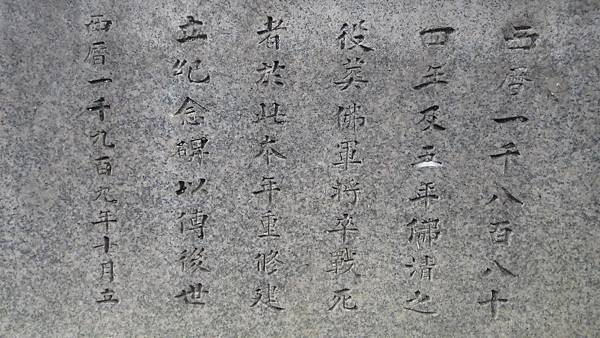 西曆一千八百八十
四年及五年佛清之
役英佛軍將卒戰死
者於此本年重修建
立紀念碑以傳後世
西曆一千九百九年十月立